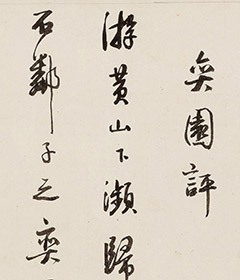 奕園評
游黃山下瀨歸
石鄰子之奕